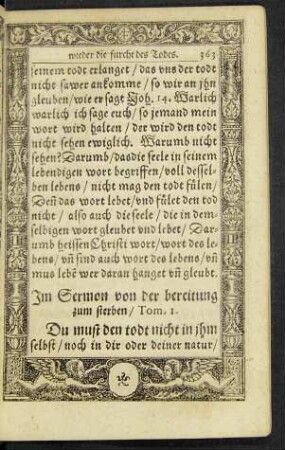 wieder die furcht des Todes. 363
seinem todt erlanget / das vns der todt
nicht sawer ankomme / so wir an jhn
gleuben / wie er sagt Joh. 14. Warlich
warlich ich sage euch / so jemand mein
wort wird halten / der wird den todt
nicht sehen ewiglich. Warumb nicht
sehen? Darumb / das die seele in seinem
lebendigen wort begriffen / voll dessel-
ben lebens / nicht mag den todt fülen /
Deñ das wort lebet / vnd fület den tod
nicht / also auch die seele / die in dem-
selbigen wort gleubet vnd lebet / Dar-
umb heissen Christi wort / wort des le-
bens / vñ sind auch wort des lebens / vñ
mus lebẽ wer daran hanget vñ gleubt.
Im Sermon von der bereitung
zum sterben / Tom. 1.
Du must den todt nicht in jhm
selbst / noch in dir oder deiner natur /